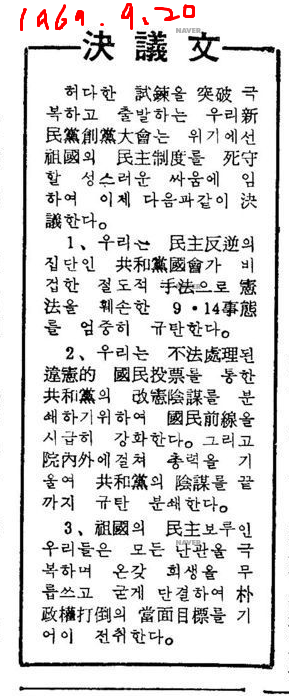 1969. 9. 20
決議文
허다한 試鍊을 突破 극
복하고 출발하는 우리新
民黨創黨大會는 위기에선
祖國의 民主制度를 死守
할 성스러운 싸움에 임
하여 이제 다음과같이 決
議한다。
1、우리는 民主反逆의
집단인 共和黨國會가 비
겁한 절도적 手法으로 憲
法을 훼손한 9·14事態
를 엄중히 규탄한다。
2、우리는 不法處理된
違憲的 國民投票를 통한
共和黨의 改憲陰謀를 분
쇄하기위하여 國民前線을
시급히 강화한다。그리고
院內外에걸쳐 총력을 기
울여 共和黨의 陰謀를 끝
까지 규탄 분쇄한다。
3、祖國의 民主보루인
우리들은 모든 난관을 극
복하며 온갖 희생을 무
릅쓰고 굳게 단결하여 朴
政權打倒의 當面目標를 기
어이 전취한다。
NAVER
NAVER
NAVER